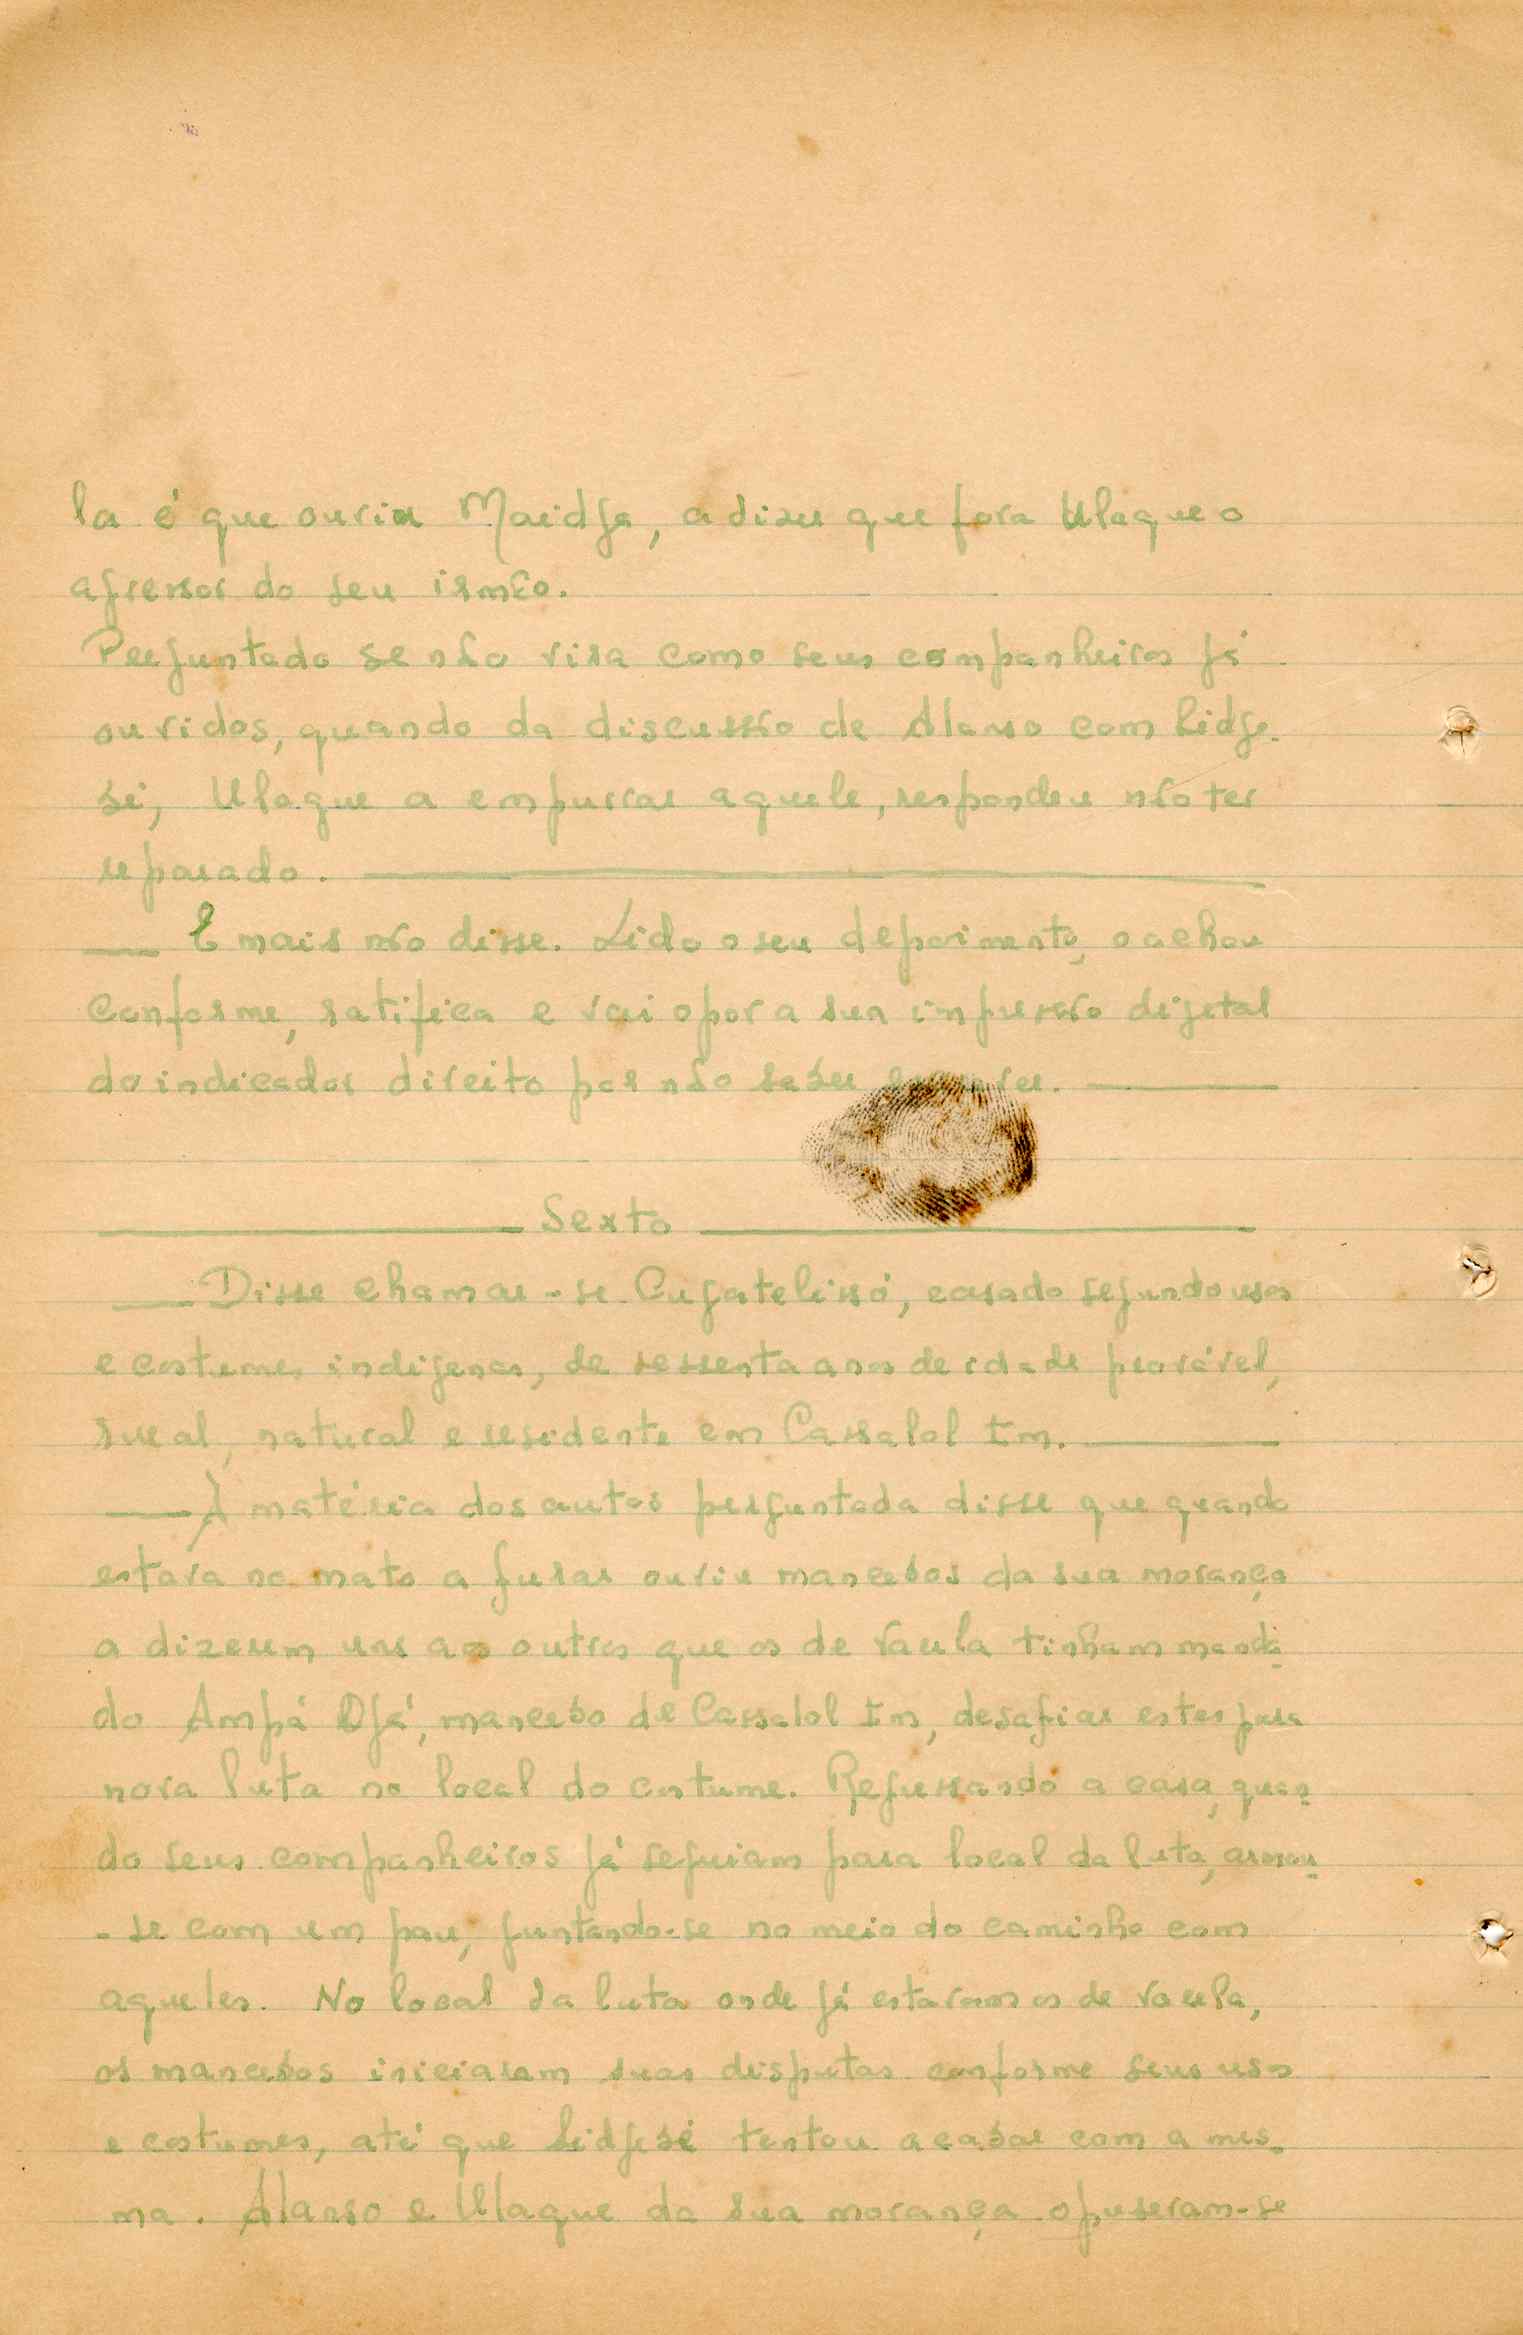 la é que ouviu Maidja, a dizer que fora Ulaque o
agressor do seu irmão.
Perguntado se não vira como seus companheiros já
ouvidos, quando da discussão de Alanso com Lidje-
bé, Ulaque a empurrar aquele, respondeu não ter
reparado.
E mais não disse. Lido o seu depoimento, o achou
conforme, ratifica e vai opor a sua impressão digital
do indicador direito por não saber escrever.
Sexto
Disse chamar-se Cugatelissó, casado segundo usos
e costumes indígenas, de sessenta anos de idade provável,
rural, natural e residente em Cassalol Im.
À matéria dos autos perguntada disse que quando
estava no mato a furar ouviu mancebos da sua morança
a dizerem uns aos outros que os de Vaula tinham manda-
do Ampá Djá, mancebo de Cassalol Im, desafiar estes para
nova luta no local do costume. Regressando a casa, quan-
do seus companheiros já seguiam para local da luta, armou-
-se com um pau, juntando-se no meio do caminho com
aqueles. No local da luta onde já estavam os de Vaula,
os mancebos iniciaram suas disputas conforme seus usos
e costumes, até que Lidjebé tentou acabar com a mes-
ma. Alanso e Ulaque da sua morança opuseram-se